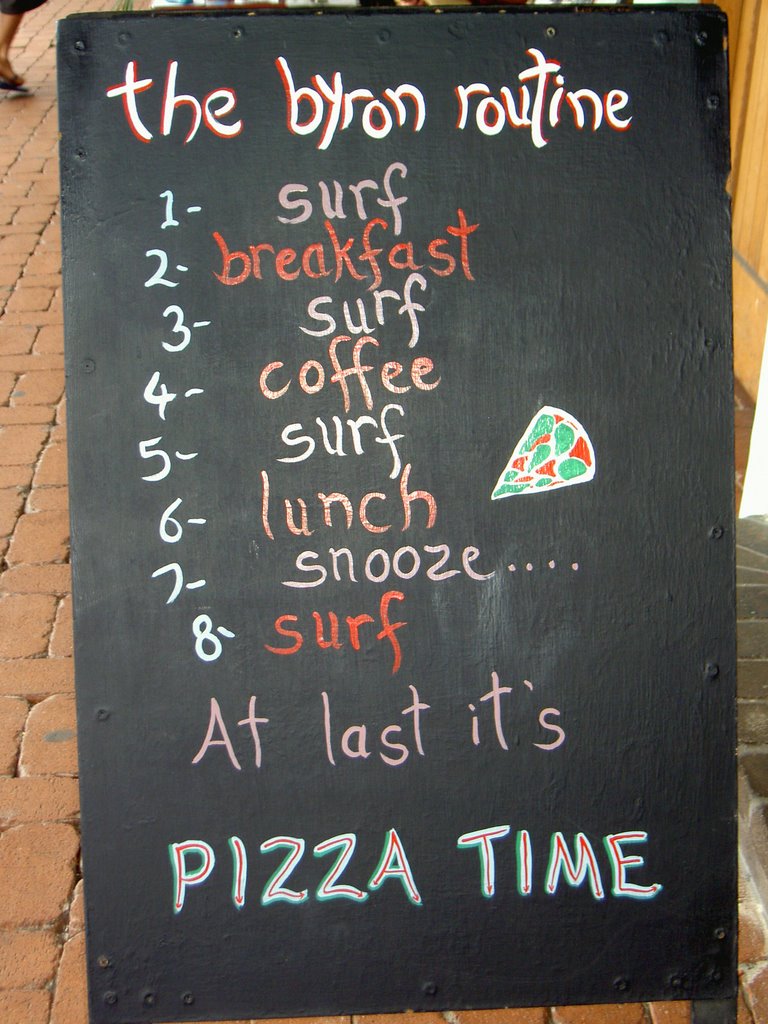 the byron routine
1- surf
2- breakfast
3- surf
4- coffee
5- surf
6- lunch
7- snooze....
8- surf
At last it's
PIZZA TIME